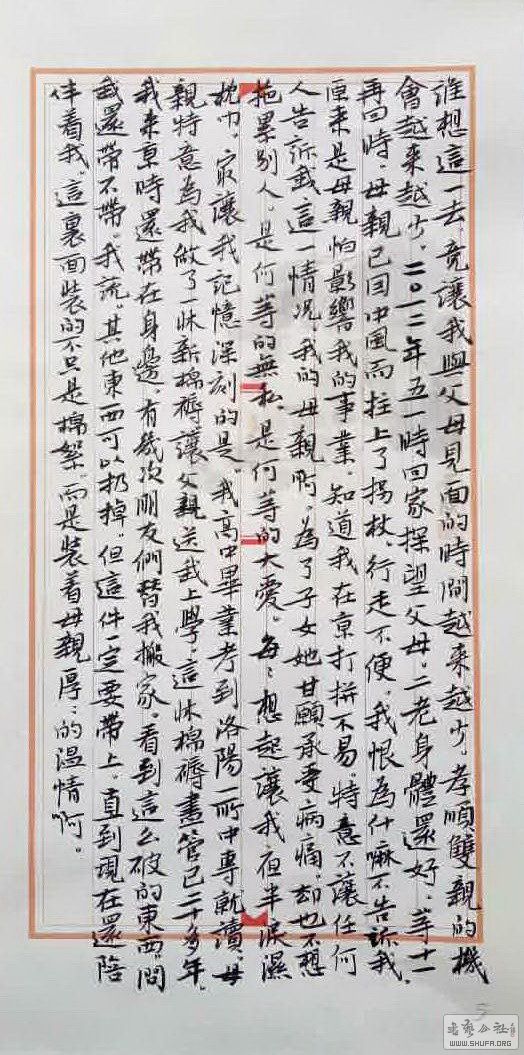 誰想這一去，竟讓我與父母見面的時間越來越少，孝順雙親的機
會越來越少。二〇一二年五一時回家探望父母，二老身體還好，等十一
再回時，母親已因中風而拄上了拐杖，行走不便，我恨為什嘛不告訴我，
原來是母親怕影響我的事業，知道我在京打拼不易，特意不讓任何
人告訴我這一情況，我的母親啊，為了子女她甘願承受病痛，却也不想
拖累别人，是何等的無私，是何等的大愛。每〻想起讓我夜半淚濕
枕巾。最讓我記憶深刻的是，我高中畢業考到洛陽一所中專就讀，母
親特意為我做了一床新棉褥讓父親送我上學，這床棉褥盡管已二十多年，
我来京時還帶在身邊，有幾次朋友們替我搬家，看到這么破的東西，問
我還帶不帶，我説，其他東西可以扔掉，但這件一定要帶上，直到現在還陪
伴着我，這裏面裝的不只是棉絮，而是装着母親厚〻的温情啊。
5
書藝公社
WWW.SHUFA.ORG